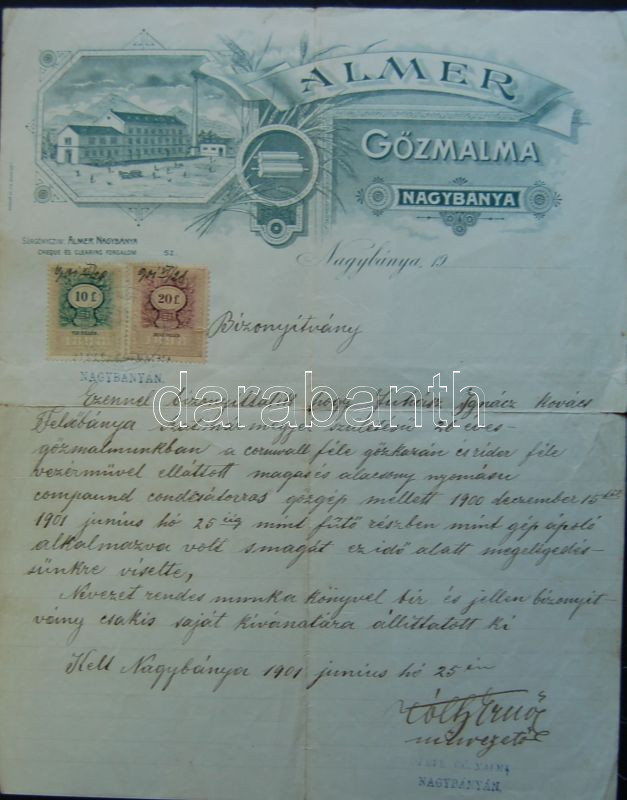 ALMER
GŐZMALMA
NAGYBÁNYA
SÜRGÖNYCZIM: ALMER NAGYBÁNYA
CHEQUE ÉS CLEARING FORGALOM
SZ.
Nagybánya, 19
10 f. 20 f.
Bizonyitvány
NAGYBÁNYÁN.
Ezennel bizonyittatik hogy Juhász Ignácz Kovács
Felsőbánya születésü
gőzmalmunkban a cornwall féle gőzkazán és rider féle
vezérművel ellátott magas és alacsony nyomásu
compaund condezátorras gőzgép mellett 1900 deczember 15 től
1901 junius hó 25 éig mint fűtő részben mint gép ápoló
alkalmazva volt s magát ez idő alatt megelégedés-
sünkre viselte,
Nevezet rendes munka könyvel bir és jellen bizonyit-
vány csakis saját kivánatára állittatott ki
Kelt Nagybánya 1901 junius hó 25 én
Tóth Ernő
művezető
NAGYBÁNYÁN.
darabanth